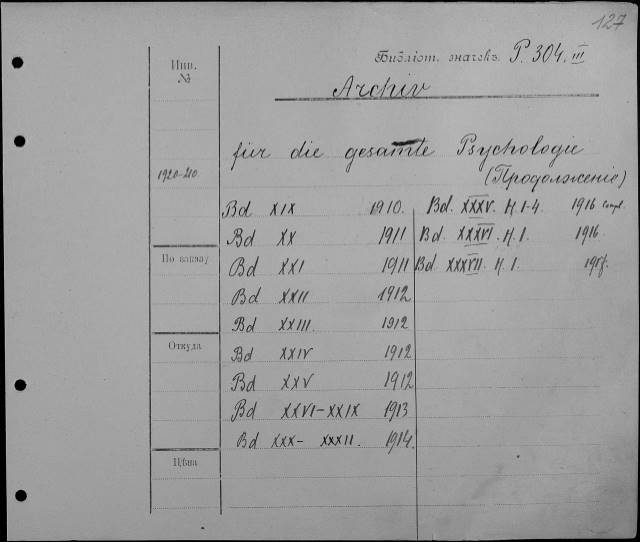 127
Библіот. значекъ P. 304. III
Инв. №
Archiv
für die gesamte Psychologie
1920-210
(Продолженіе)
Bd XIX 1910.
Bd XX 1911
Bd XXI 1911
Bd XXII 1912
Bd XXIII. 1912
Bd XXIV 1912
Bd XXV 1912
Bd XXVI-XXIX 1913
Bd XXX- XXXII. 1914.
Bd. XXXV. H. 1-4. 1916 compl.
Bd. XXXVI. H. 1. 1916.
Bd. XXXVII. H. 1.
По заказу
Откуда
Цѣна